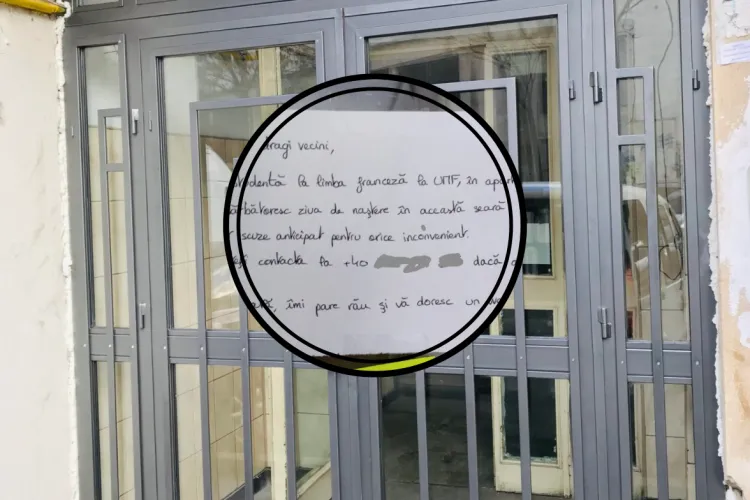 dragi vecini,
dentă la limba franceză la UMF, în apar
ărbătoresc ziua de naștere în această seară
scuze anticipat pentru orice inconvenient.
ți contacta la +40 dacă
îmi pare rău și vă doresc un